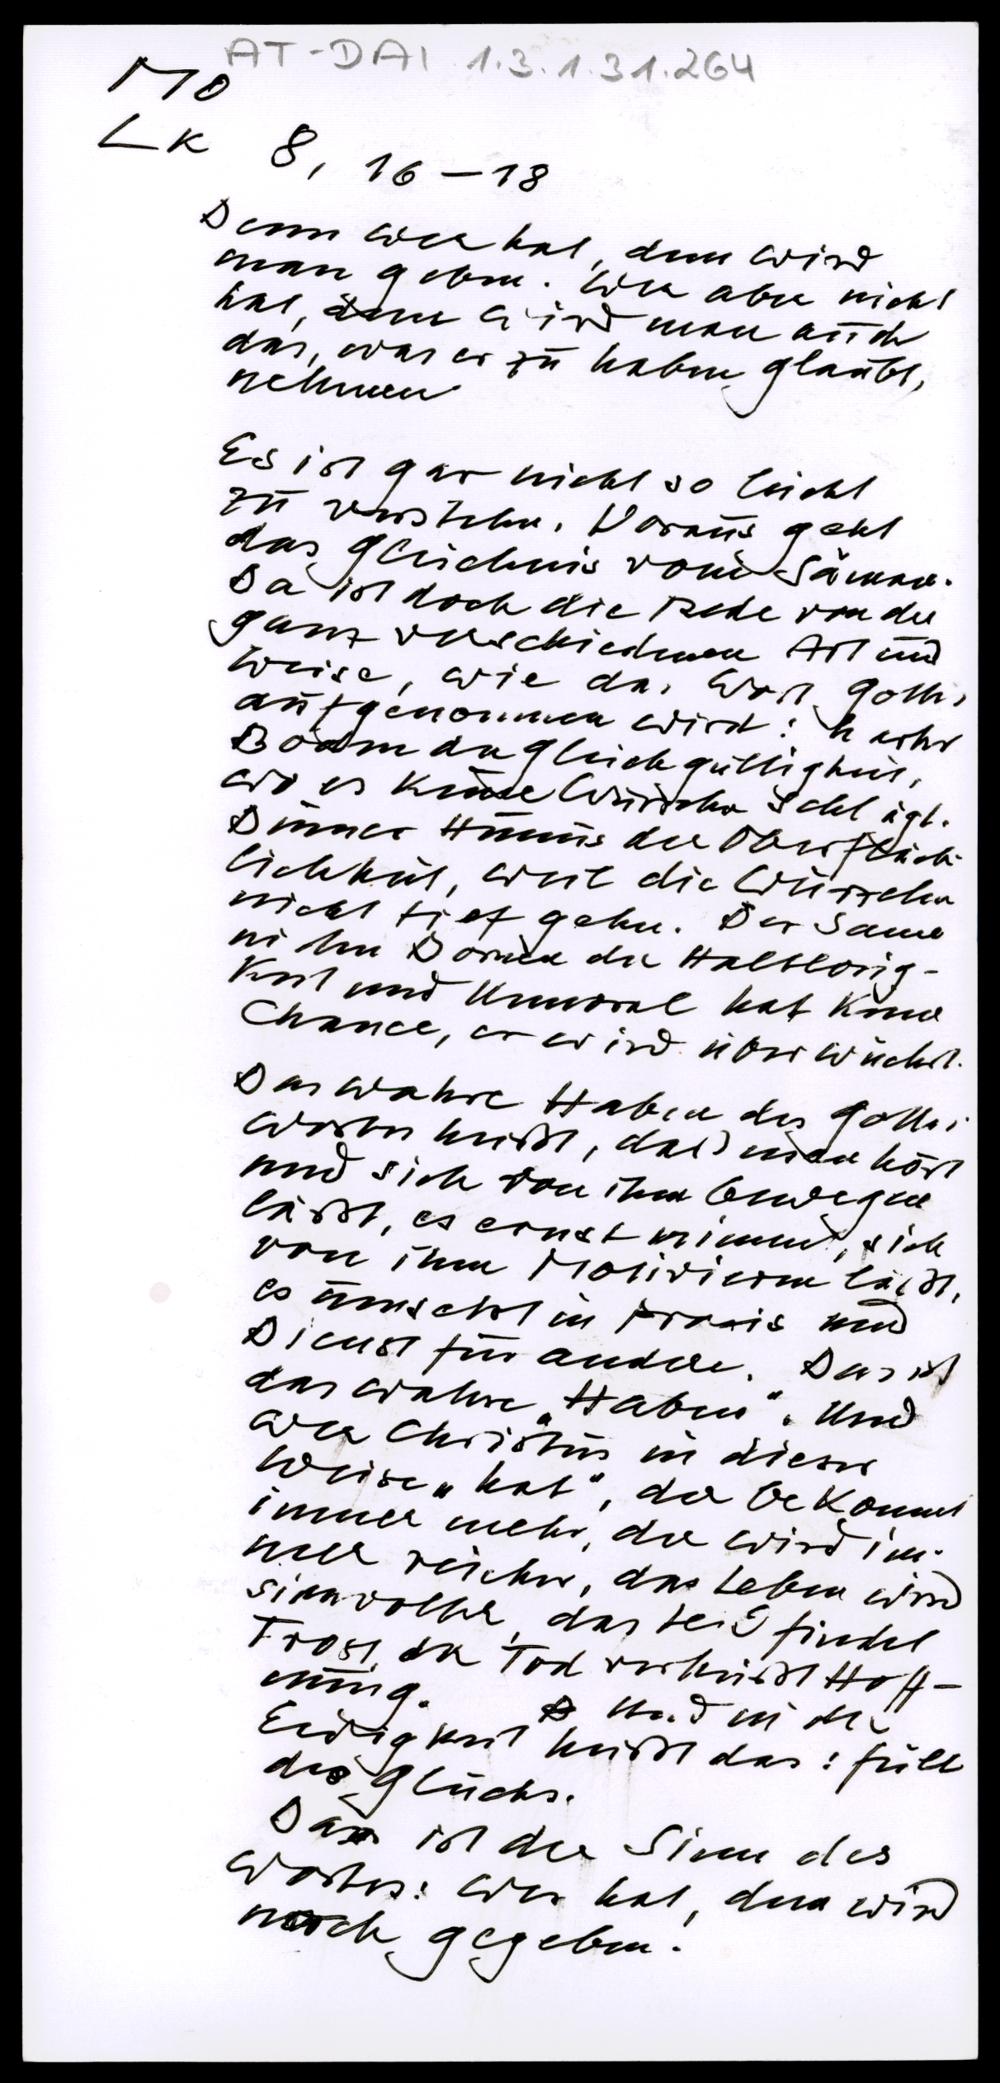 AT-DAI 1.3.1.31.264
Mo
Lk 8, 16-18
Denn wer hat, dem wird
man geben. Wer aber nicht
hat, dem wird man auch
das, was er zu haben glaubt,
nehmen
Es ist gar nicht so leicht
zu verstehn. Voraus geht
das Gleichnis vom Sämann.
Da ist doch die Rede von der
ganz verschiedenen Art und
Weise, wie das Wort Gottes
aufgenommen wird: harter
Boden der Gleichgültigkeit,
wo es keine Wurzeln schlägt.
Dünner Humus der Oberfläch-
lichkeit, weil die Wurzeln
nicht tief gehn. Der Same
in den Dornen der Haltlosig-
keit und Unmoral hat keine
Chance, er wird überwuchert.
Das wahre Haben des Gottes
Wortes heißt, daß man hört
und sich von ihm bewegen
läßt, es ernst nimmt, sich
von ihm Motivieren läßt,
es umsetzt in Praxis und
Dienst für andere. Das ist
das wahre "Haben". Und
wer Christus in dieser
Weise "hat", der bekommt
immer mehr, der wird im-
mer reicher, das Leben wird
sinnvoller, das Leid findet
Trost, der Tod verheißt Hoff-
nung. Und in der
Ewigkeit heißt das: Fülle
des Glücks.
Das ist der Sinn des
Wortes: Wer hat, dem wird
noch gegeben.